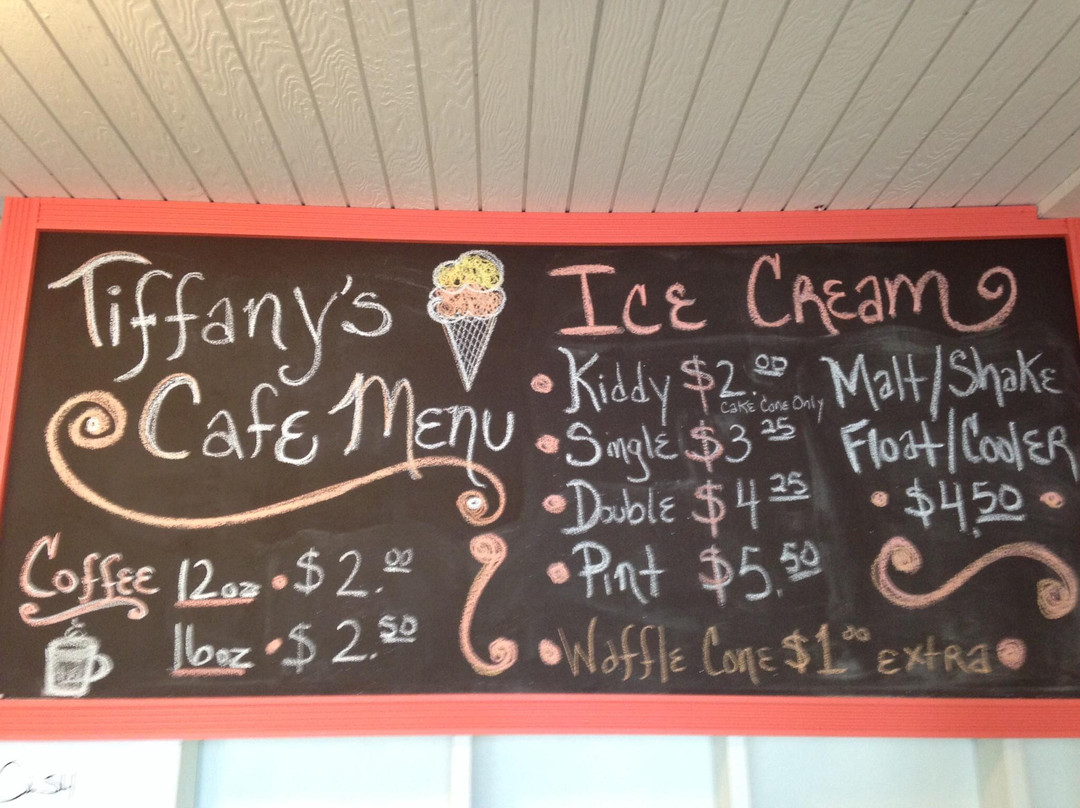 Tiffany's
Cafe Menu
Coffee 12oz $2.00
16oz $2.50
Ice Cream
Kiddy $2.00
Cake Cone Only
Single $3 25
Double $4 25
Pint $5.50
Waffle Cone $1 00 extra
Malt/Shake
Float/Cooler
$4.50